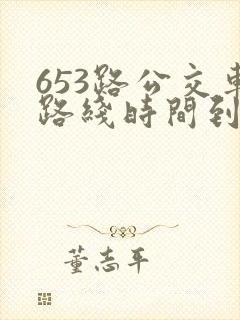 653路公交車
路綫時間到
董志平